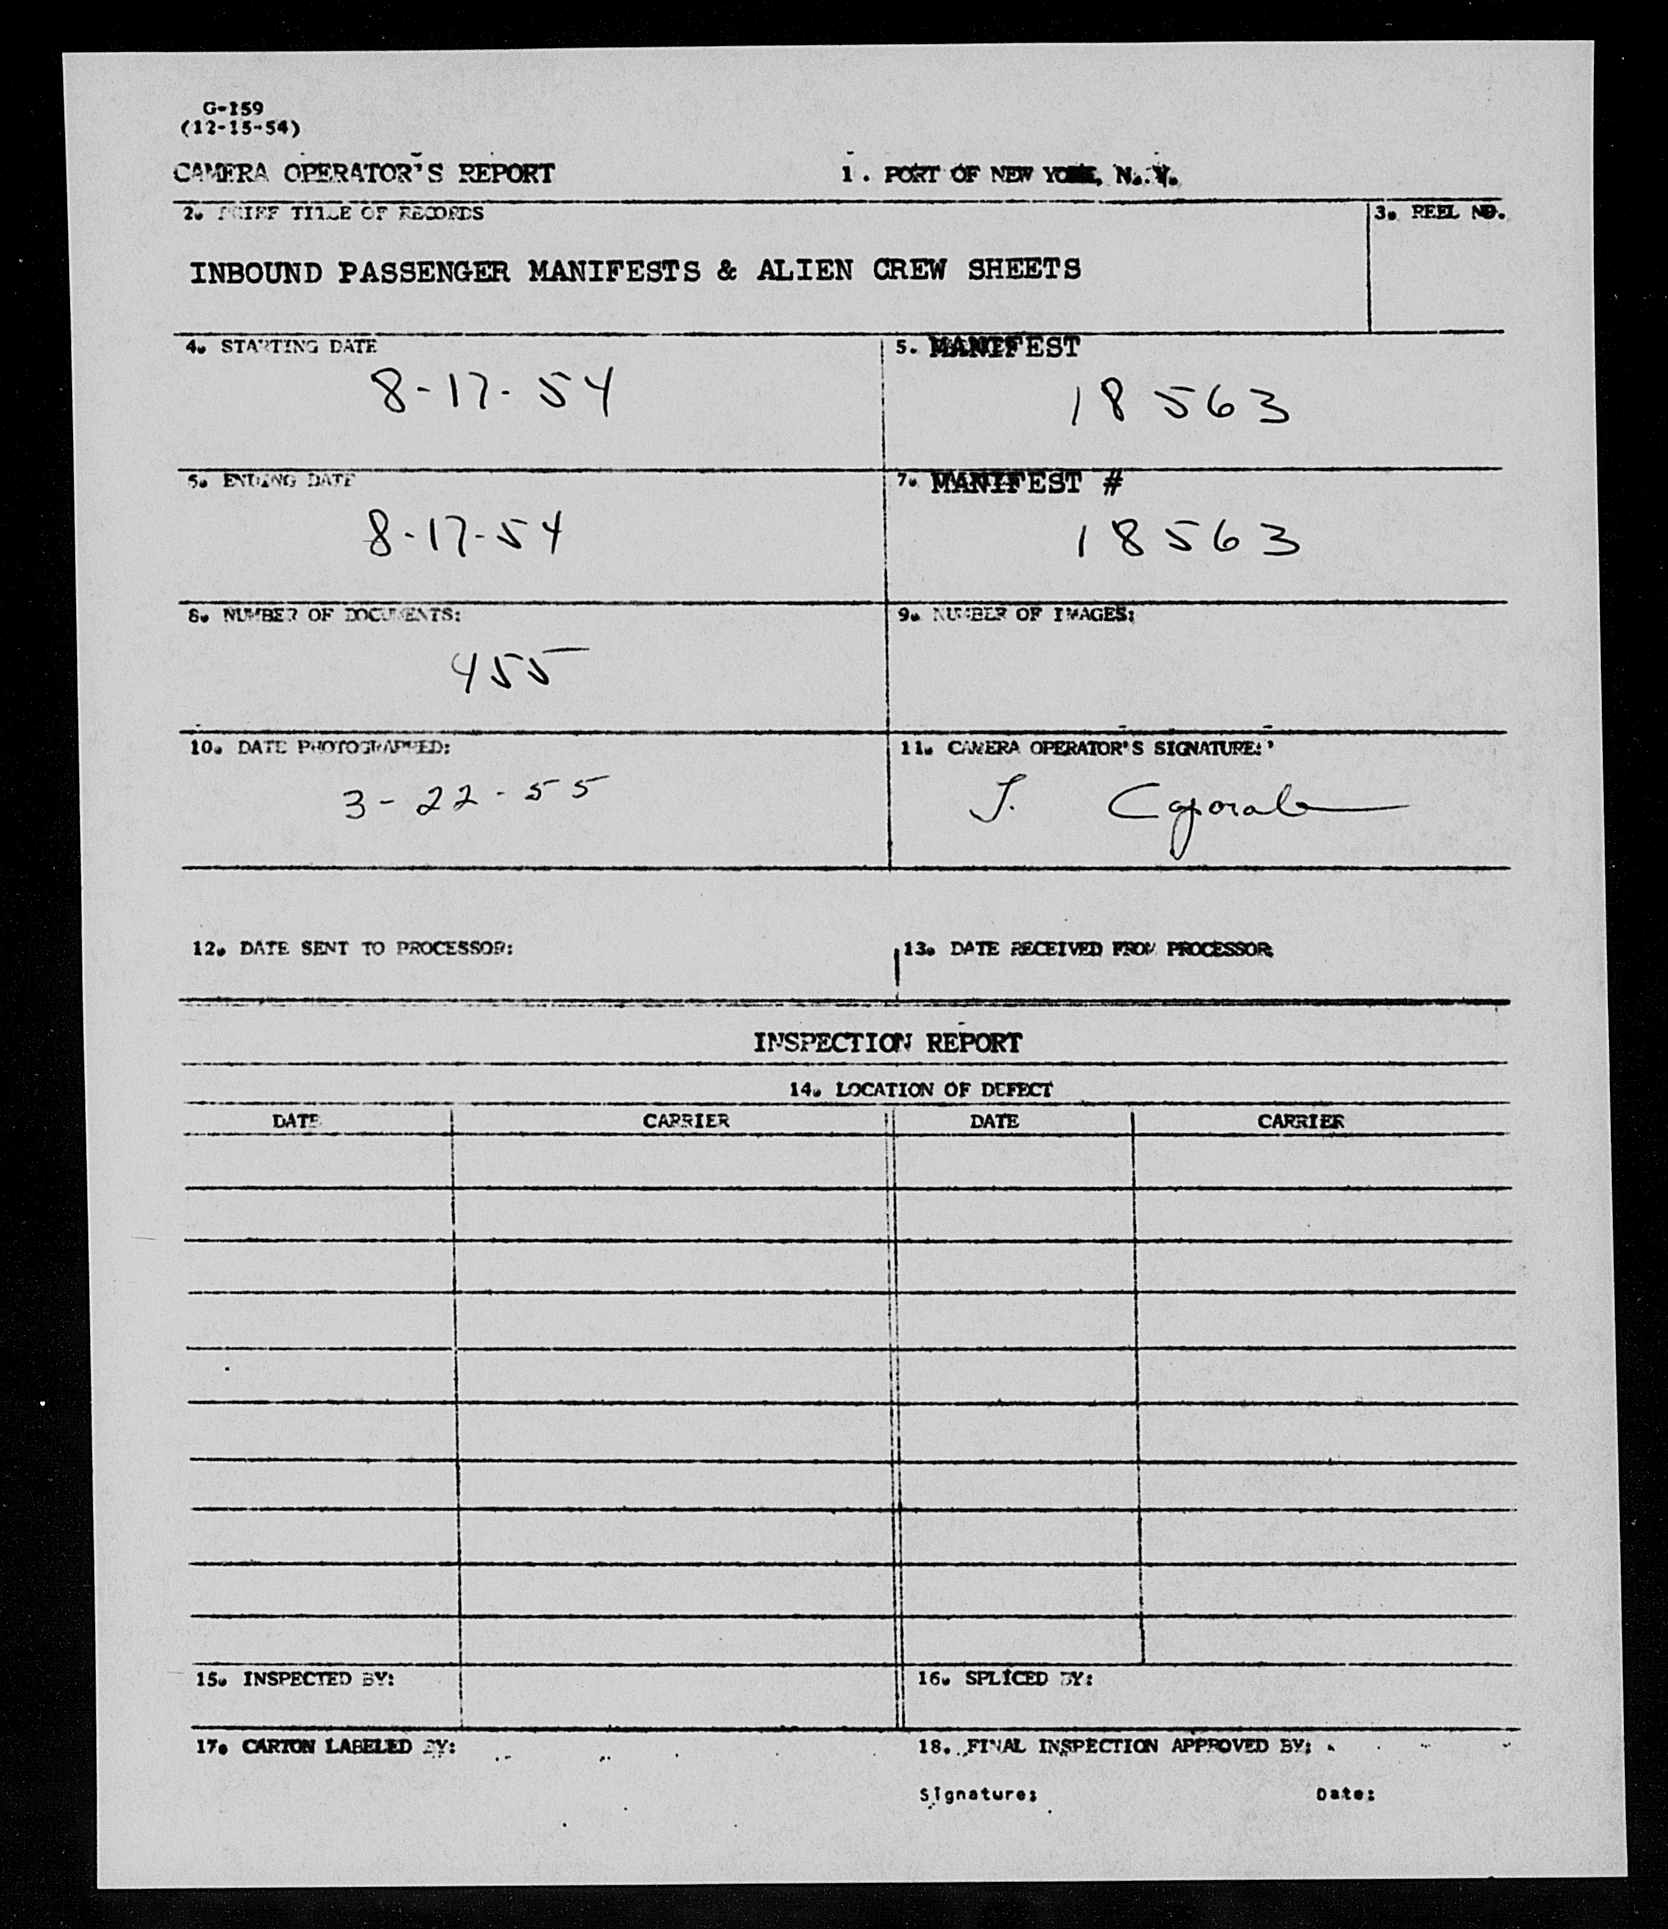 G-159
(12-15-54)
CAMERA OPERATOR'S REPORT 1. PORT OF NEW YORK, N. Y.
2. BRIEF TITLE OF RECORDS 3. REEL NO.
INBOUND PASSENGER MANIFESTS & ALIEN CREW SHEETS
4. STARTING DATE 5. MANIFEST
8-17-54 18563
6. ENDING DATE 7. MANIFEST #
8-17-54 18563
8. NUMBER OF DOCUMENTS: 9. NUMBER OF IMAGES:
455
10. DATE PHOTOGRAPHED: 11. CAMERA OPERATOR'S SIGNATURE:
3-22-55 J.
12. DATE SENT TO PROCESSOR: 13. DATE RECEIVED FROM PROCESSOR
INSPECTION REPORT
14. LOCATION OF DEFECT
DATE CARRIER DATE CARRIER
15. INSPECTED BY: 16. SPLICED BY:
17. CARTON LABELED BY: 18. FINAL INSPECTION APPROVED BY:
Signature: Date: